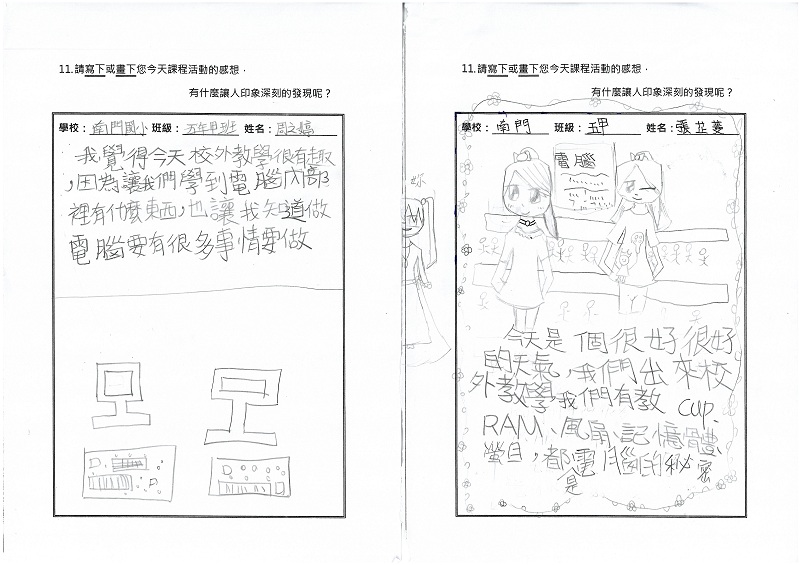 11.請寫下或畫下您今天課程活動的感想，
有什麼讓人印象深刻的發現呢？
學校：南門國小 班級：五年甲班 姓名：周之婷
我覺得今天校外教學很有趣
，因為讓我們學到電腦內部
裡有什麼東西，也讓我知道做
電腦要有很多事情要做
11.請寫下或畫下您今天課程活動的感想，
有什麼讓人印象深刻的發現呢？
學校：南門 班級：五甲 姓名：張芷菱
電腦
今天是個很好很好
的天氣，我們出來校
外教學我們有教 CUP、
RAM、風扇、記憶體
螢目，都是電腦的秘密